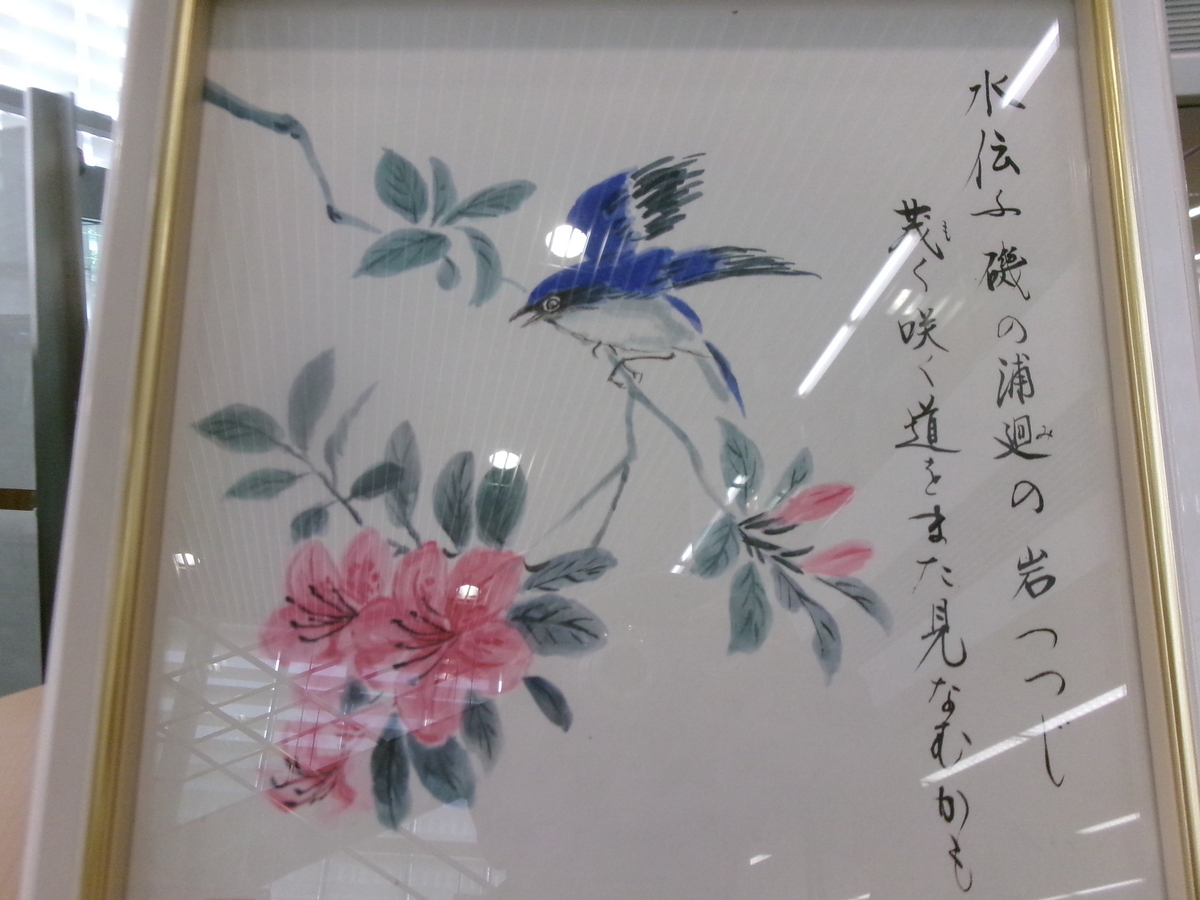 水伝ふ磯の浦廻の岩つつじ
み
茂く咲く道をまた見なむかも
も